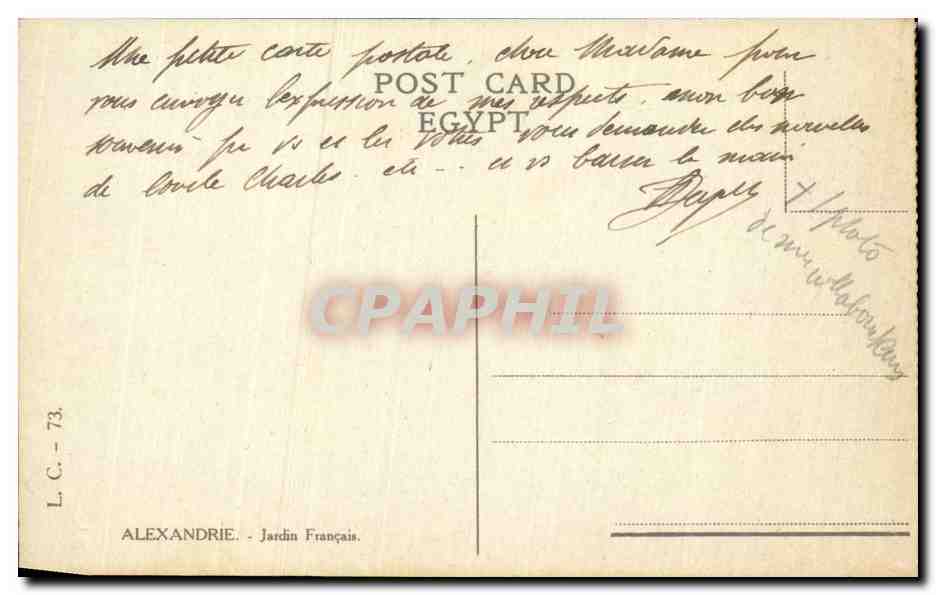 Une petite carte postale, chère Madame pour
POST CARD
vous envoyer l'expression de mes respects, mon bon
EGYPT
souvenir pr vs et les vôtres, vous demander des nouvelles
de Charles. etc... et vs baiser la main
+ 1 photo
de mes collaborateurs
CPAPHIL
L. C. - 73.
ALEXANDRIE. - Jardin Français.